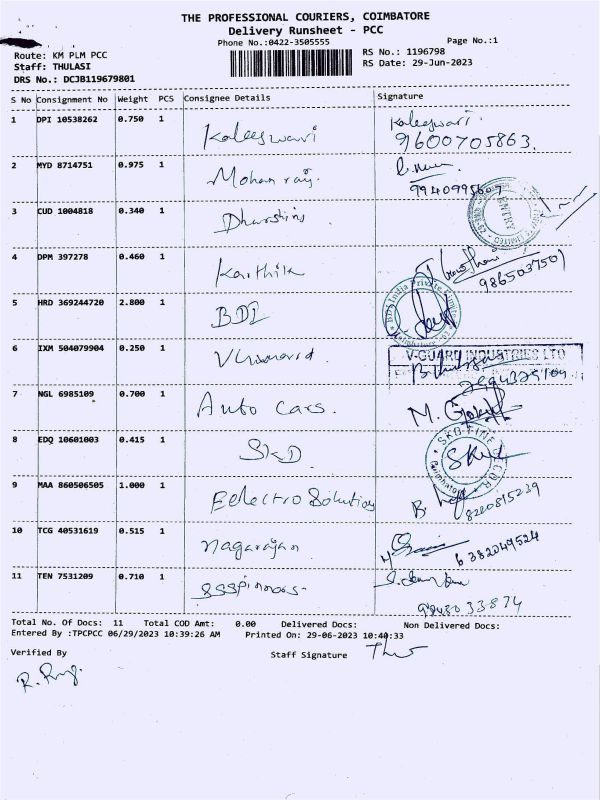 THE PROFESSIONAL COURIERS, COIMBATORE
Delivery Runsheet - PCC
Phone No.:0422-3505555
Page No.:1
Route: KM PLM PCC
RS No.: 1196798
Staff: THULASI
RS Date: 29-Jun-2023
DRS No.: DCJB119679801
S No Consignment No Weight PCS Consignee Details Signature
1 DPI 10538262 0.750 1 Kaleeswari Kaleeswari.
9600705863.
2 MYD 8714751 0.975 1 Mohan raj.
9940995607
3 CUD 1004818 0.340 1
ENTRY
4 DPM 397278 0.460 1 Karthik
9865037501
5 HRD 369244720 2.800 1 BDI
BDI India Private Limited
6 IXM 504079904 0.250 1
V-GUARD INDUSTRIES LTD
7 NGL 6985109 0.700 1 Auto Cars.
8 EDQ 10601003 0.415 1 SKD
Coimbatore
9 MAA 860506505 1.000 1 Eelectro Solutions
8220815239
10 TCG 40531619 0.515 1 nagarajan
6382049524
11 TEN 7531209 0.710 1
Total No. Of Docs: 11 Total COD Amt: 0.00 Delivered Docs: Non Delivered Docs:
Entered By :TPCPCC 06/29/2023 10:39:26 AM Printed On: 29-06-2023 10:40:33
Verified By
Staff Signature